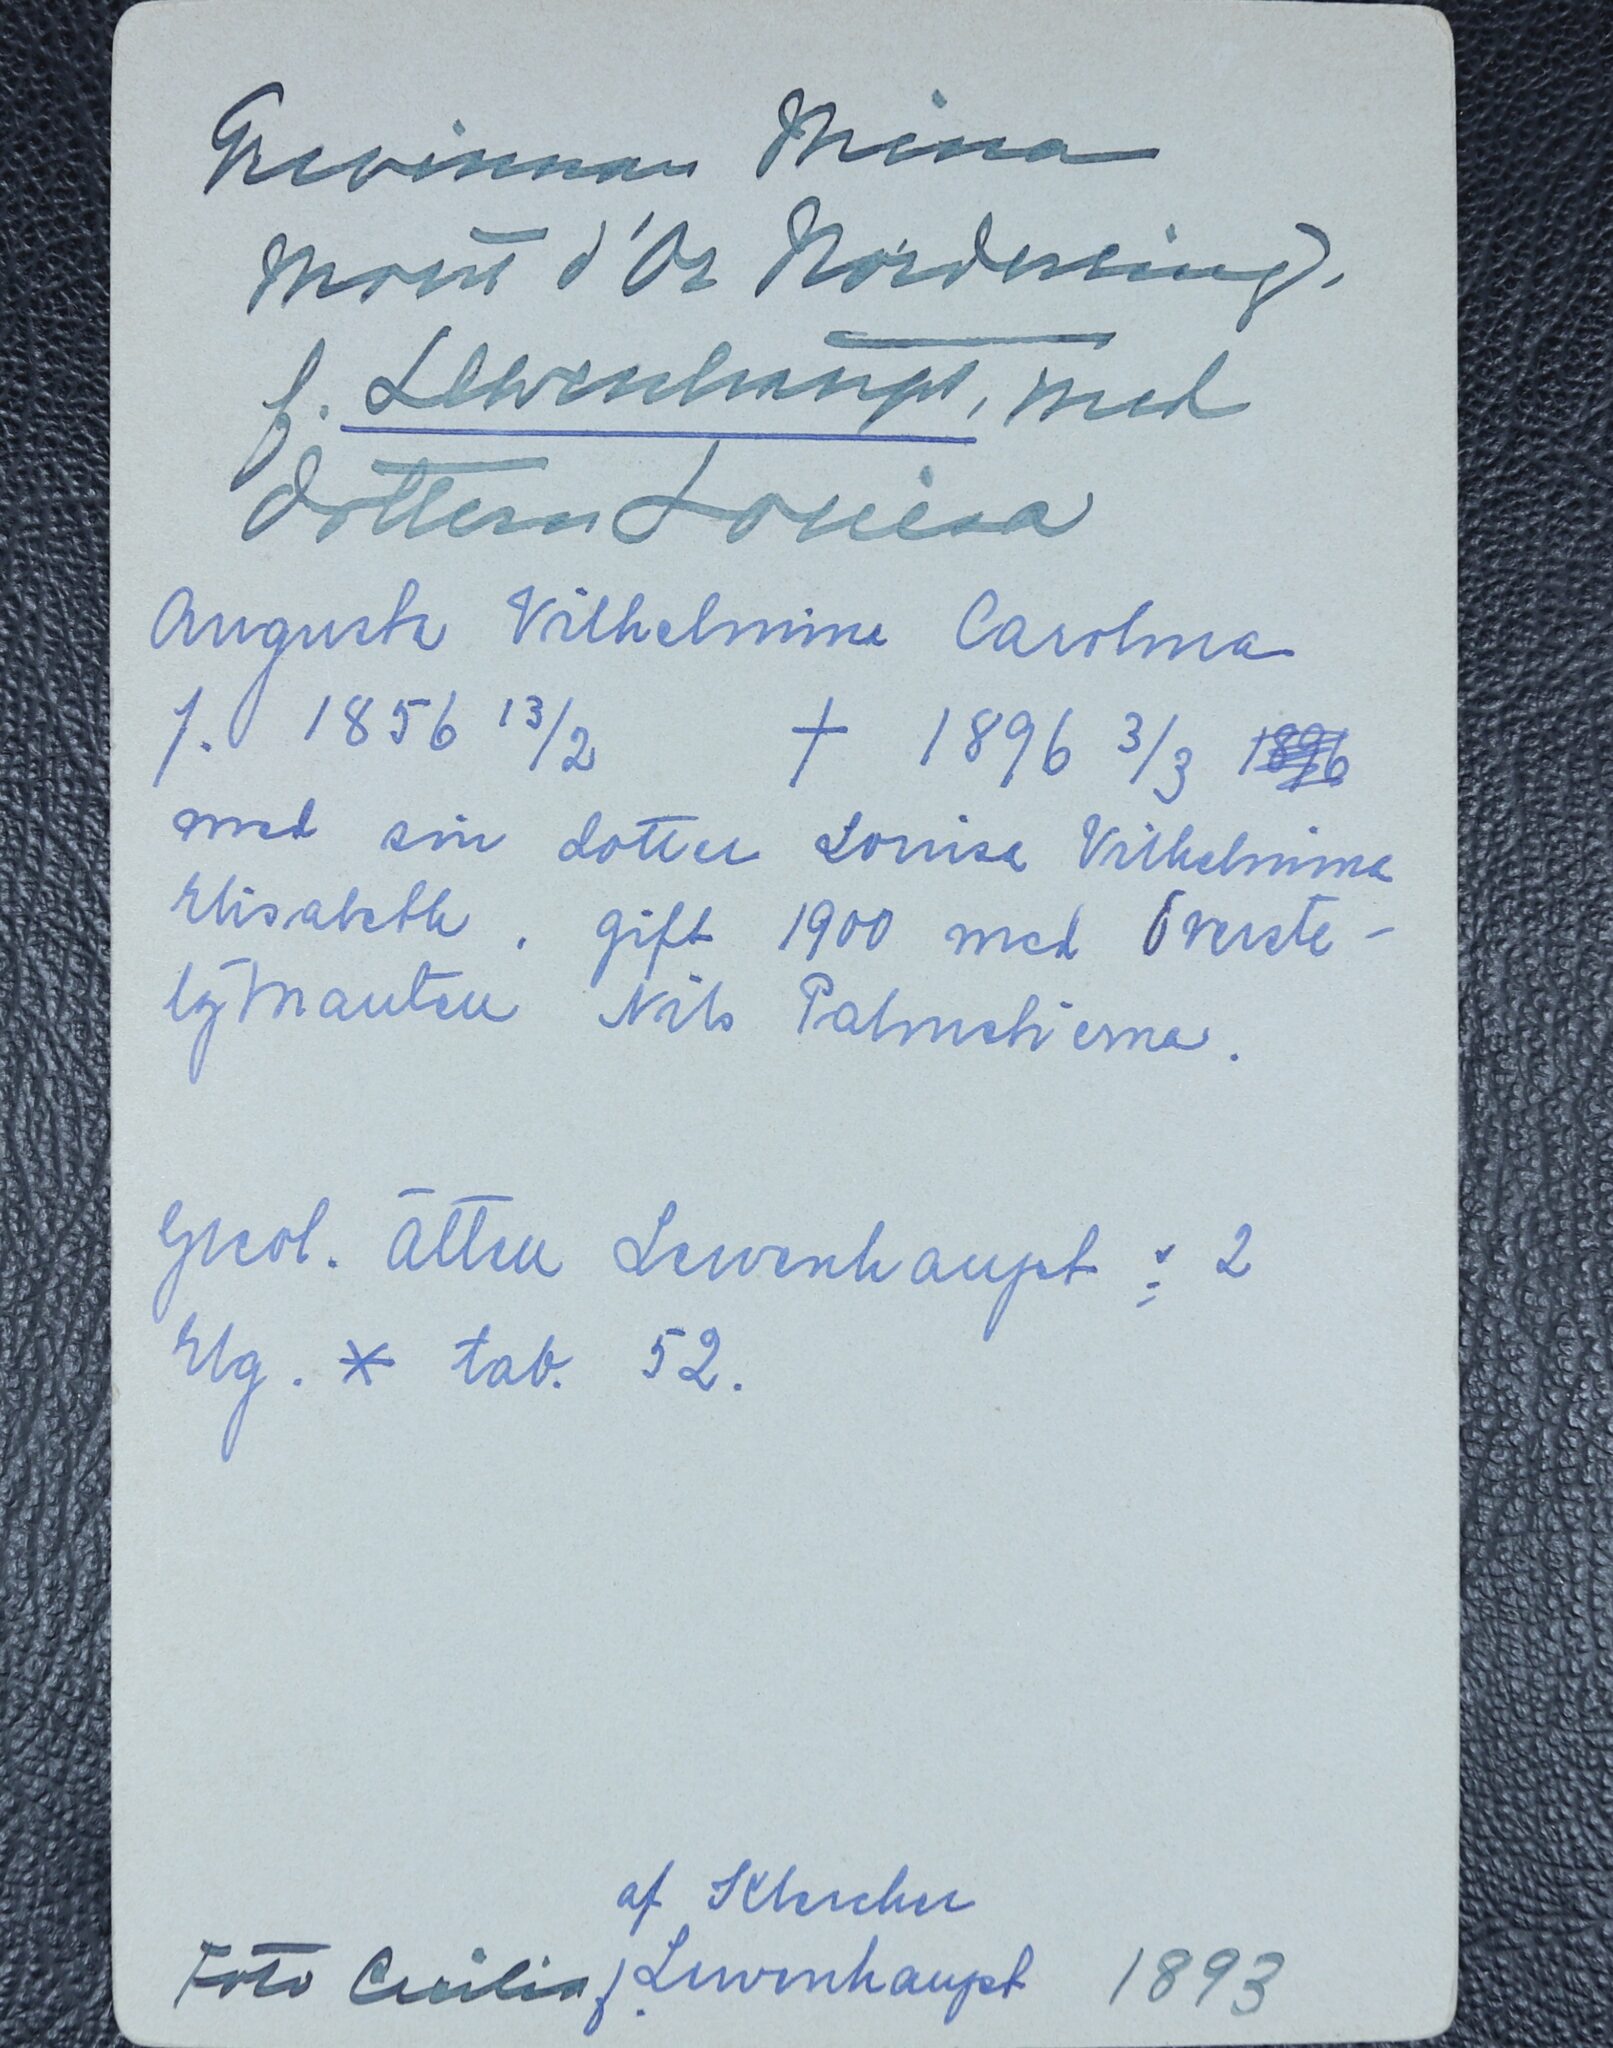 Grevinnan Mina
Mont d'Or Nordenting,
f. Lewenhaupt, med
dottern Louisa
Augusta Vilhelmina Carolina
f. 1856 13/2 † 1896 3/3 1896
med sin dotter Louisa Vilhelmina
Elisabeth. gift 1900 med Överste-
löjtnanten Nils Palmstierna.
Ätten Lewenhaupt : 2
Elg. * tab. 52.
af Klercker
Foto Cecilia f. Lewenhaupt 1893